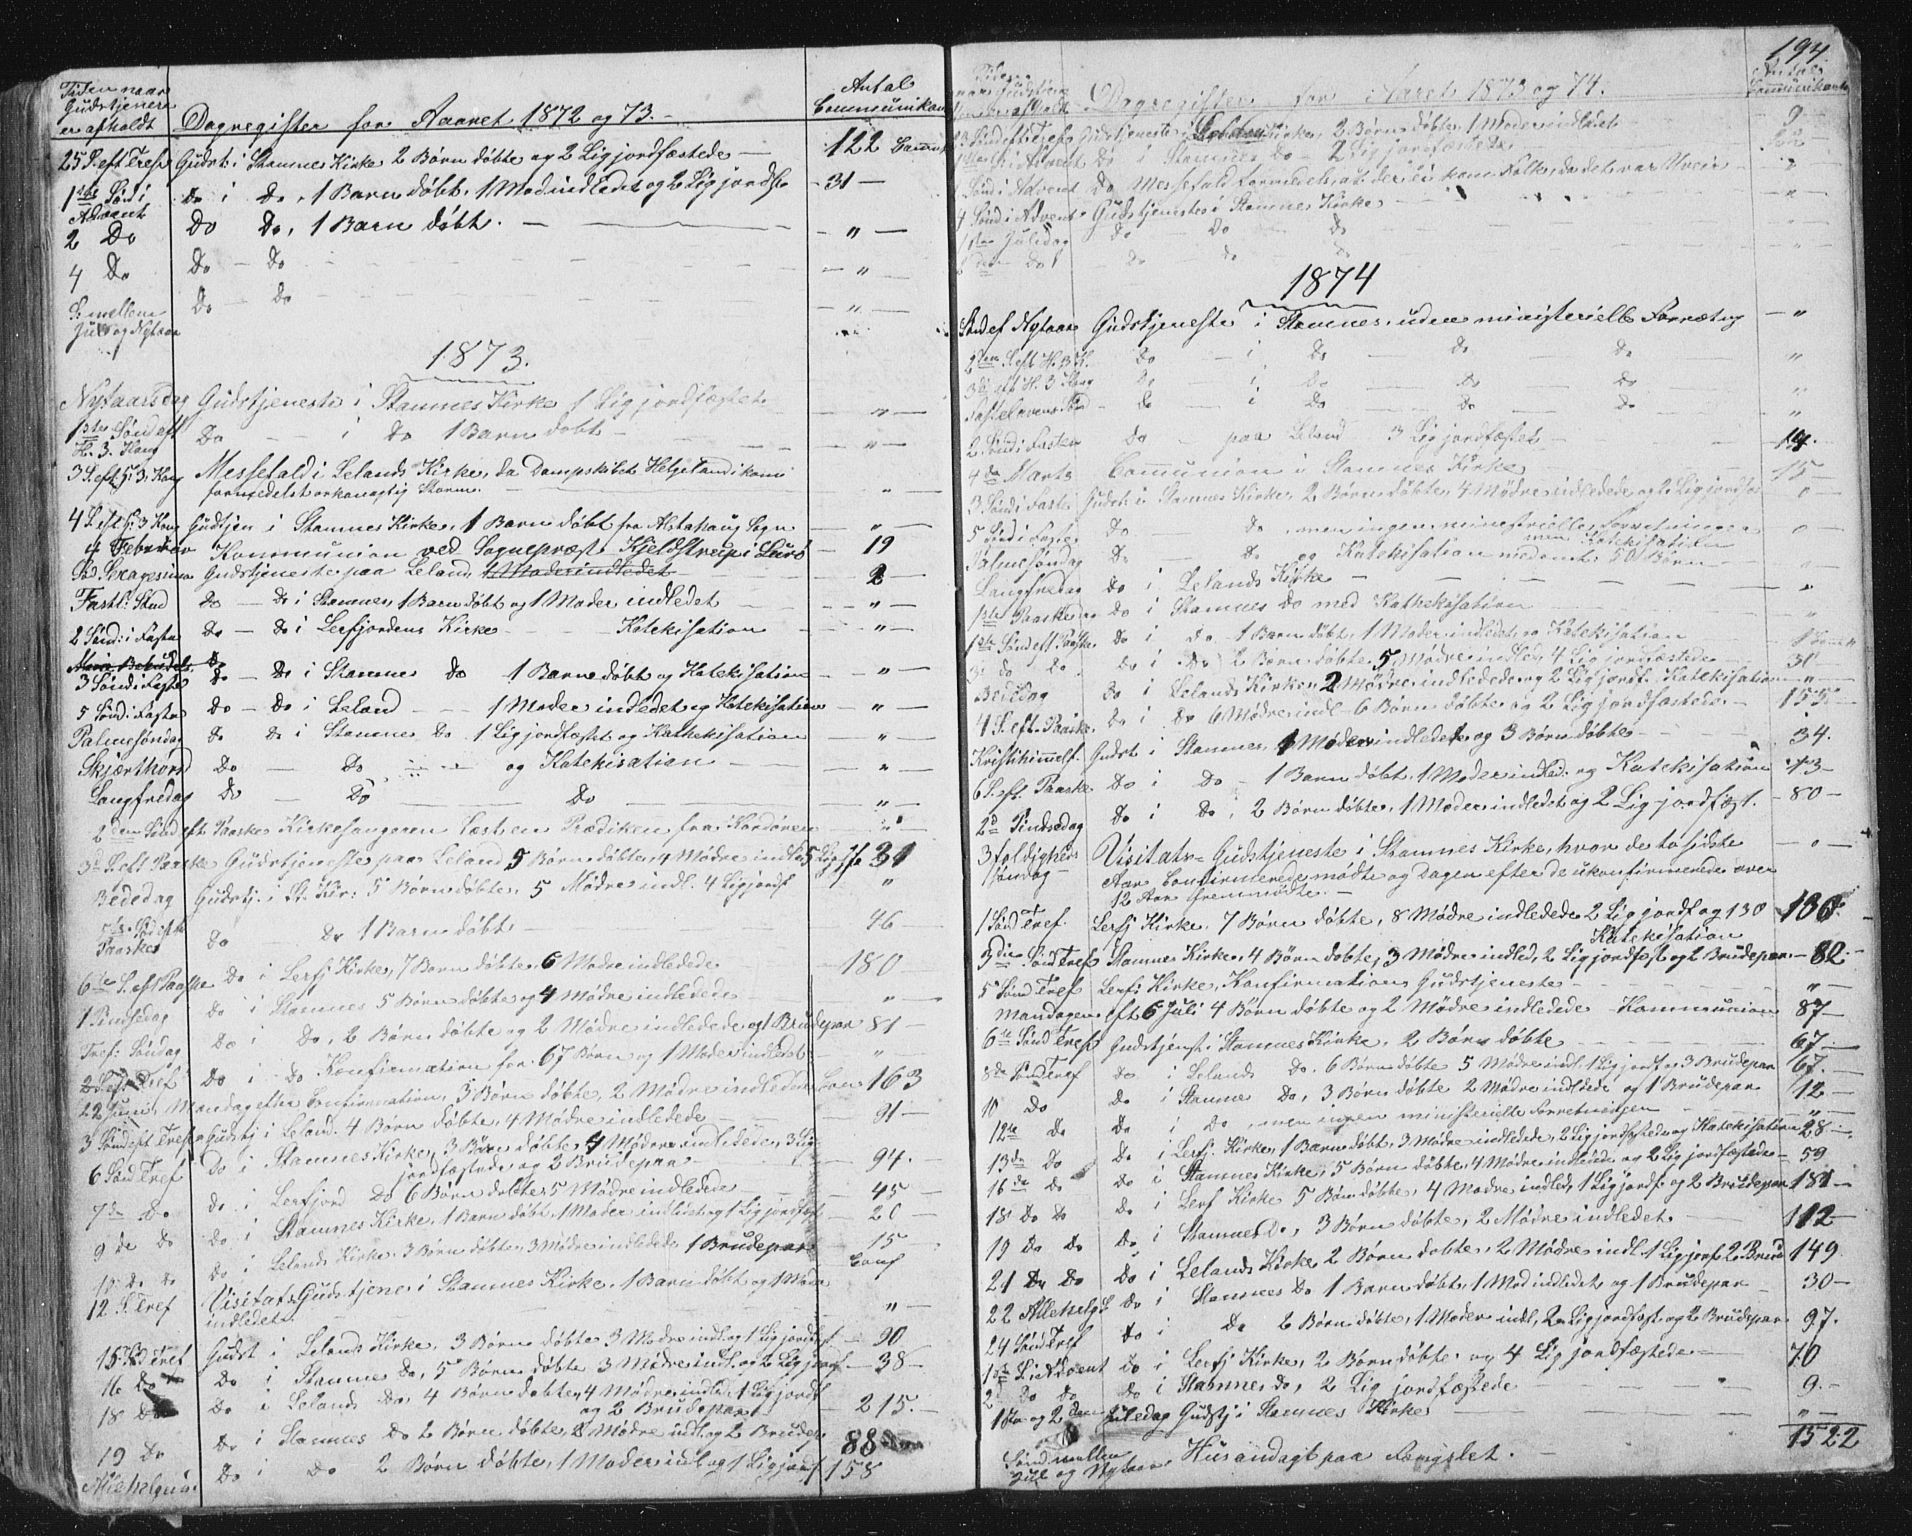 Tiden naar
Gudstjenest
er afholdt
Dagregister for Aaret 1872 og 73.
Antal
Communikan
25 S. eft Tref Gudst. i Stamnes Kirke 2 Børn døbte og 2 Lig jordfæstede — 122 Comm
1ste Sønd i Do i Do, 1 Barn døbt, 1 Mod indledt og 2 Lig jordf. — 31 —
Advent
2 Do Do Do, 1 Barn døbt. — " —
4 Do Do — Do — "
S. mellem Do — Do — "
Jul og Nytaar
1873.
Nytaarsdag Gudstjeneste i Stamnes Kirke 1 Lig jordfæstet — " —
1ste Sønd eft Do — i Do 1 Barn døbt — " —
H. 3. Kong
3 S. eft H. 3 Kong Messefald i Lelands Kirke, da Dampskibet Helgeland ikom
formedelst orkanagtig Storm. — " —
4 S. eft H. 3 Kong Gudtjen i Stamnes Kirke, 1 Barn døbt fra Alstahaug Sogn — " —
4 Februar Kommunion ved Sognepræst Kjeldstrup i Lurø — 19
Sd Sexagesima Gudstjeneste paa Leland 1 Moder indledet — 2 —
Fastl: Snd Do — Do i Stamnes, 1 Barn døbt og 1 Moder indledet — " —
2 Sønd: i Faste Do — Do i Lerfjordens Kirke — Katekisation — " —
Mari Bebudels Do
3 Sønd i Faste Do — Do i Stamnes Do 1 Barn døbt og Katekisation — " —
5 Sønd: i Faste Do — Do i Leland — 1 Moder indledet og Katekisation — " —
Palmesøndag Do Do i Stamnes Do 1 Lig jordfæstet og Kathekisation — " —
Skjærthorsd Do — Do og Katekisation — " —
Langfredag Do — Do — Do — " —
2den Sønd eft Paaske Kirkesangeren Læst en Prædiken fra Kordøren "
3d S. eft Paaske Gudstjeneste paa Leland 5 Børn døbte, 4 Mødre indled 5 Lig jf 31
Bededag Gudstj. i St. Kir: 5 Børn døbte, 5 Mødre indl. 4 Lig jordf "
Sd eft Do — Do 1 Barn døbt — 46 —
Paaske
6te S. eft Paaske Do i Lerfj Kirke, 7 Børn døbte, 6 Mødre indledede — 180
1 Pindsedag Do i Stamnes 5 Børn døbte og 4 Mødre indledede — " —
Tref: Søndag Do i Do, 2 Børn døbte og 2 Mødre indledede og 1 Brudepar 81 —
2 S. eft Tref Do i Do Konfirmation for 67 Børn og 1 Moder indledet — " —
22 Juni, Mandag efter Confirmation, 3 Børn døbte, 2 Mødre indledede Com 163
3 Sønd eft Tref Gudstj i Leland. 4 Børn døbte, 4 Mødre indledede — 91 —
6 Sønd Tref Do i Stamnes Kirke, 3 Børn døbte, 4 Mødre indledede, 3 Lig
jordfæstede og 2 Brudepar — 94. —
7de Do Do i Lerfjord Do 6 Børn døbte, 5 Mødre indledede — 45 —
9de Do Do i Stamnes Kirke, 1 Barn døbt, 1 Moder indledt og 1 Lig jordfæst 20 —
Do Do i Lelands Kirke, 3 Børn døbte, 3 Mødre indledede, 1 Brudepar 15 —
Conf
12 S. Tref Visitats Gudstjenes i Stamnes Kirke, 1 Barn døbt og 1 Moder
indledet. — " —
15 Sd Tref Gudst i Lelands Kirke, 3 Børn døbte 3 Mødre indl. og 1 Lig jordfæst — 90 —
16 Do Do i Stamnes Do, 5 Børn døbte 3 Mødre indl. og 2 Lig jordf — 38 —
18 Do Do i Lelands Do, 4 Børn døbte, 4 Mødre indled, 1 Lig jordf
og 2 Brudepar — 215. —
19 Do Do i Stamnes Do 2 Børn døbte, 2 Mødre indl. og 2 Brudep 88
Allehelgens Do i Do 2 Børn døbte, 1 Moder indl. og 1 Lig jordf 158
194.
Dagregister for Aaret 1873 og 74.
Antal
Communikante
Gudstjeneste i Kirke, 2 Børn døbte, 1 Moder indledet 9
Do i Stamnes Do — 2 Lig jordfæstede
Sønd i Advent Do Messefald formedelst, at der ei kom Folk, da det var Uveir — "
4 Sønd i Advent Gudstjeneste i Stamnes Kirke — "
1ste Juledag Do — Do — Do
2den Do Do — Do — Do
1874
Sønd ef Nytaar Gudstjeneste i Stamnes, uden ministerielle Forretng — "
2den S. eft H. 3 K. Do — i Do — Do — Do "
3d S. eft H. 3 Kong Do — i Do — Do — Do "
Fastelavens Sønd — Do — i Do — Do — Do "
2 Sønd i Fasten Do — paa Leland 3 Lig jordfæstet — 14.
4de Marts Communion i Stamnes Kirke — 15 —
3 Sønd i Faste Gudst: i Stamnes Kirke, 2 Børn døbte, 4 Mødre indledede og 2 Lig jordfæs — 0 —
5 Sønd i Faste Do — Do men ingen ministrielle Forretninger — 0 —
men Katekisation
Palmesøndag Do — Do og Katekisation med omt: 50 Børn —
Langfredag Do i Lelands Kirke — "
1ste Paaskedag Do i Stamnes Do med Kathekisation — "
1ste Sønd eft Paaske Do i Do. 1 Barn døbt, 1 Moder indledet, og Katekisation
3: Do Do Do i Do 2 Børn døbte, 5 Mødre indled, 4 Lig jordfæstede — 31
Bededag Do i Lelands Kirke, 2 Mødre indledede og 2 Lig jordf. Katekisation — " —
4 S. eft. Paaske Do i Do 6 Mødre indl — 6 Børn døbte og 2 Lig jordfæstede — 155 —
Kristi himmelf. Gudst i Stamnes, 1 Moder indledet og 3 Børn døbte — 34.
6 S. eft. Paaske Do i Do — 1 Barn døbt, 1 Moder indled. og Katekisation 13 —
2d Pindsedag Do i Do, 2 Børn døbte, 1 Moder indledet og 2 Lig jordfæst. — 80 —
3foldigheds Visitats-Gudstjeneste i Stamnes Kirke, hvor de to sidste — 0 —
Søndag — Aar Confirmerede mødte og Dagen efter de ukonfirmerede over
12 Aar fremmødte. —
1 Sønd Tref. Lerfj Kirke, 7 Børn døbte, 8 Mødre indledede 2 Lig jordf og 130 130.
Katekisation
3die Sønd Tref Stamnes Kirke, 4 Børn døbte, 3 Mødre indled, 2 Lig jordfæst og 2 Brudepar — 82. —
5 Sønd Tref Lerfj: Kirke, Konfirmations Gudstjeneste — " —
Mandagen eft 6 Juli 4 Børn døbte og 2 Mødre indledede — Kommunion 87 —
6te Sønd Tref Gudstjenst. i Stamnes Kirke, 2 Børn døbte — 67. —
8de Sønd Tref Do i Lelands Do. 6 Børn døbte 5 Mødre indl. 1 Lig jordf og 3 Brudepar 67. —
10 Do Do i Stamnes Do, 3 Børn døbte 2 Mødre indledede og 1 Brudepar 12 —
12te Do Do i Do, men ingen ministerielle Forretninger — "
13de Do Do i Lerfj. Kirke, 1 Barn døbt, 3 Mødre indledede, 2 Lig jordfæstede og Katekisation 28 —
16 de Do Do i Stamnes Kirke, 5 Børn døbte, 4 Mødre indledede og 2 Lig jordfæstede — 59
18 Do Do Do i Lerf Kirke 5 Børn døbte, 4 Mødre indled, 1 Lig jordf og 2 Brudepar 181 —
19 Do Do Do i Stamnes Do, 3 Børn døbte, 2 Mødre indledet. — 112 —
21 Do Do Do i Lelands Kirke, 2 Børn døbte, 2 Mødre indl. 1 Lig jorf 2 Brud 149.
22 Allehelgs Do i Stamnes Do 1 Barn døbt, 1 Mod indledet og 1 Brudepar — 30 —
24 Sønd Tref Do i Do 2 Børn døbte, 1 Moder indl, 2 Lig jordfæst og 2 Brudepar 97.
1ste S i Advent Do i Lerfj Kirke, 2 Børn døbte og 4 Lig jordfæstede — 70
2 Do Do Do i Stamnes Do, 2 Lig jordfæstede — 9. —
1ste og 2den Juledag Gudstj i Stamnes Kirke — " —
1522
Sønd mellem
Jul og Nytaar Husandagt paa Fengslet. —